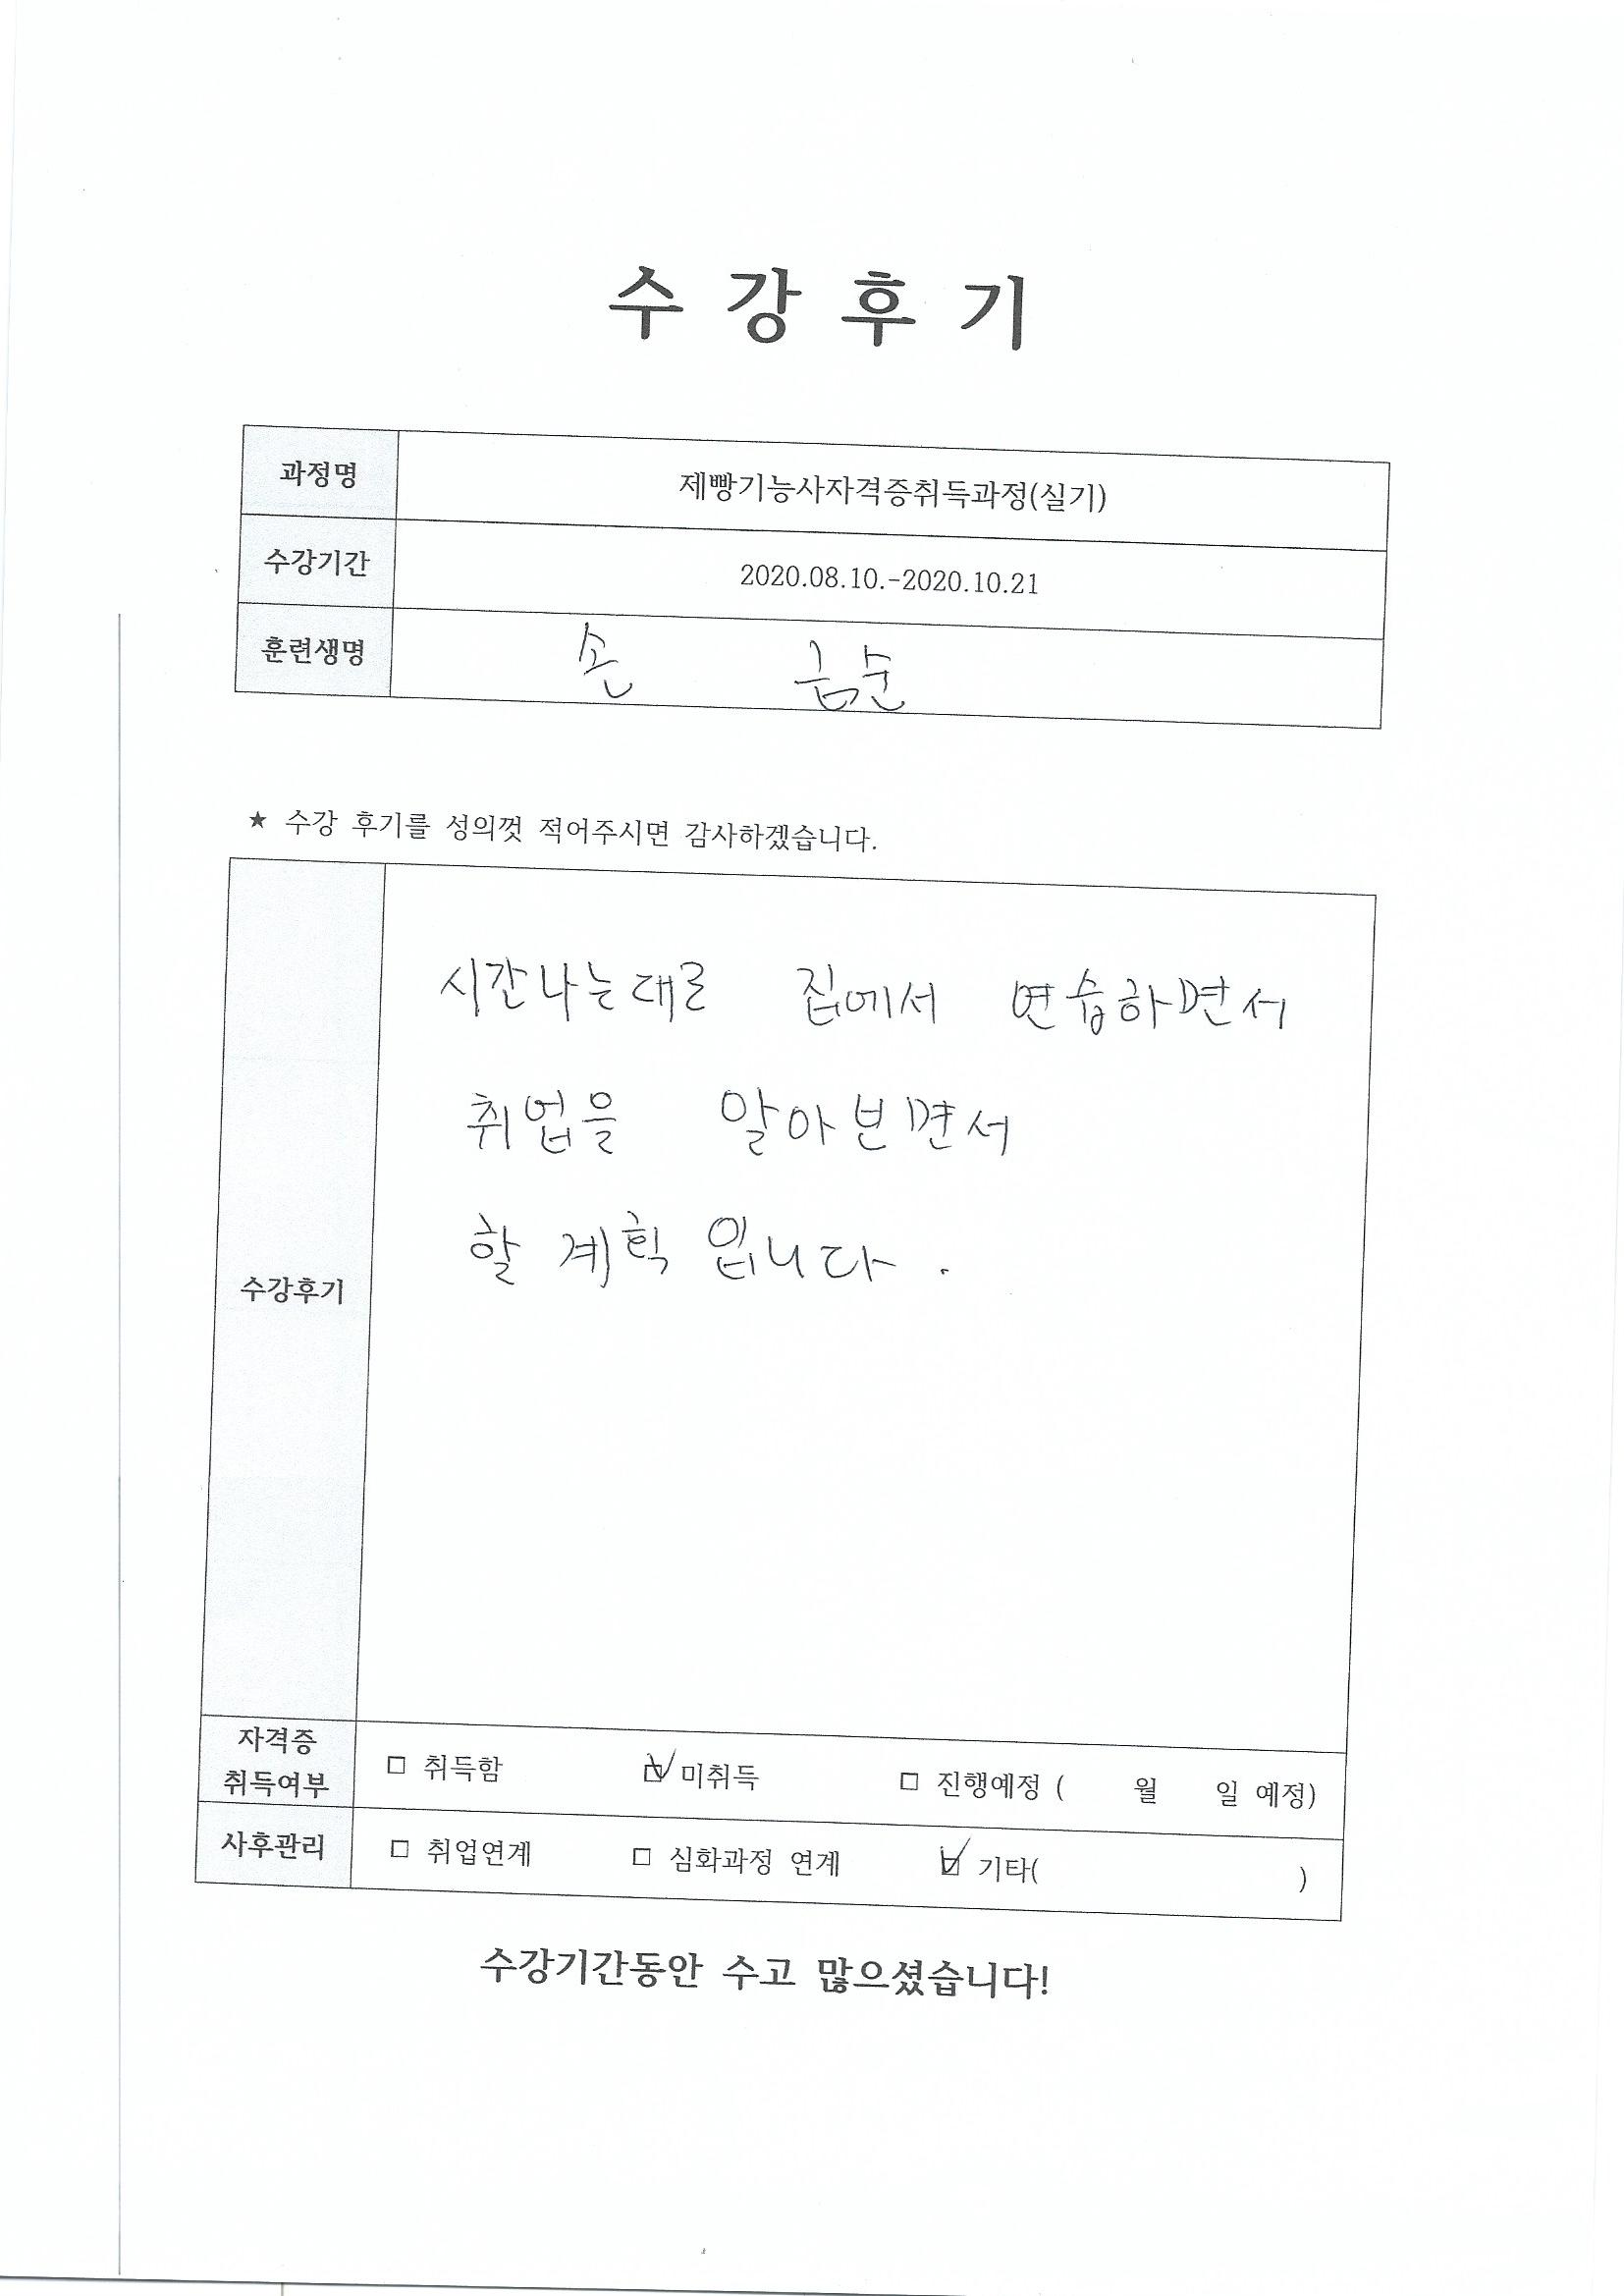 수 강 후 기
과정명 제빵기능사자격증취득과정(실기)
수강기간 2020.08.10.-2020.10.21
훈련생명 손 금순
★ 수강 후기를 성의껏 적어주시면 감사하겠습니다.
시간나는대로 집에서 연습하면서
취업을 알아보면서
수강후기 할 계획 입니다.
자격증
취득여부 □ 취득함 ☑ 미취득 □ 진행예정 ( 월 일 예정)
사후관리 □ 취업연계 □ 심화과정 연계 ☑ 기타( )
수강기간동안 수고 많으셨습니다!